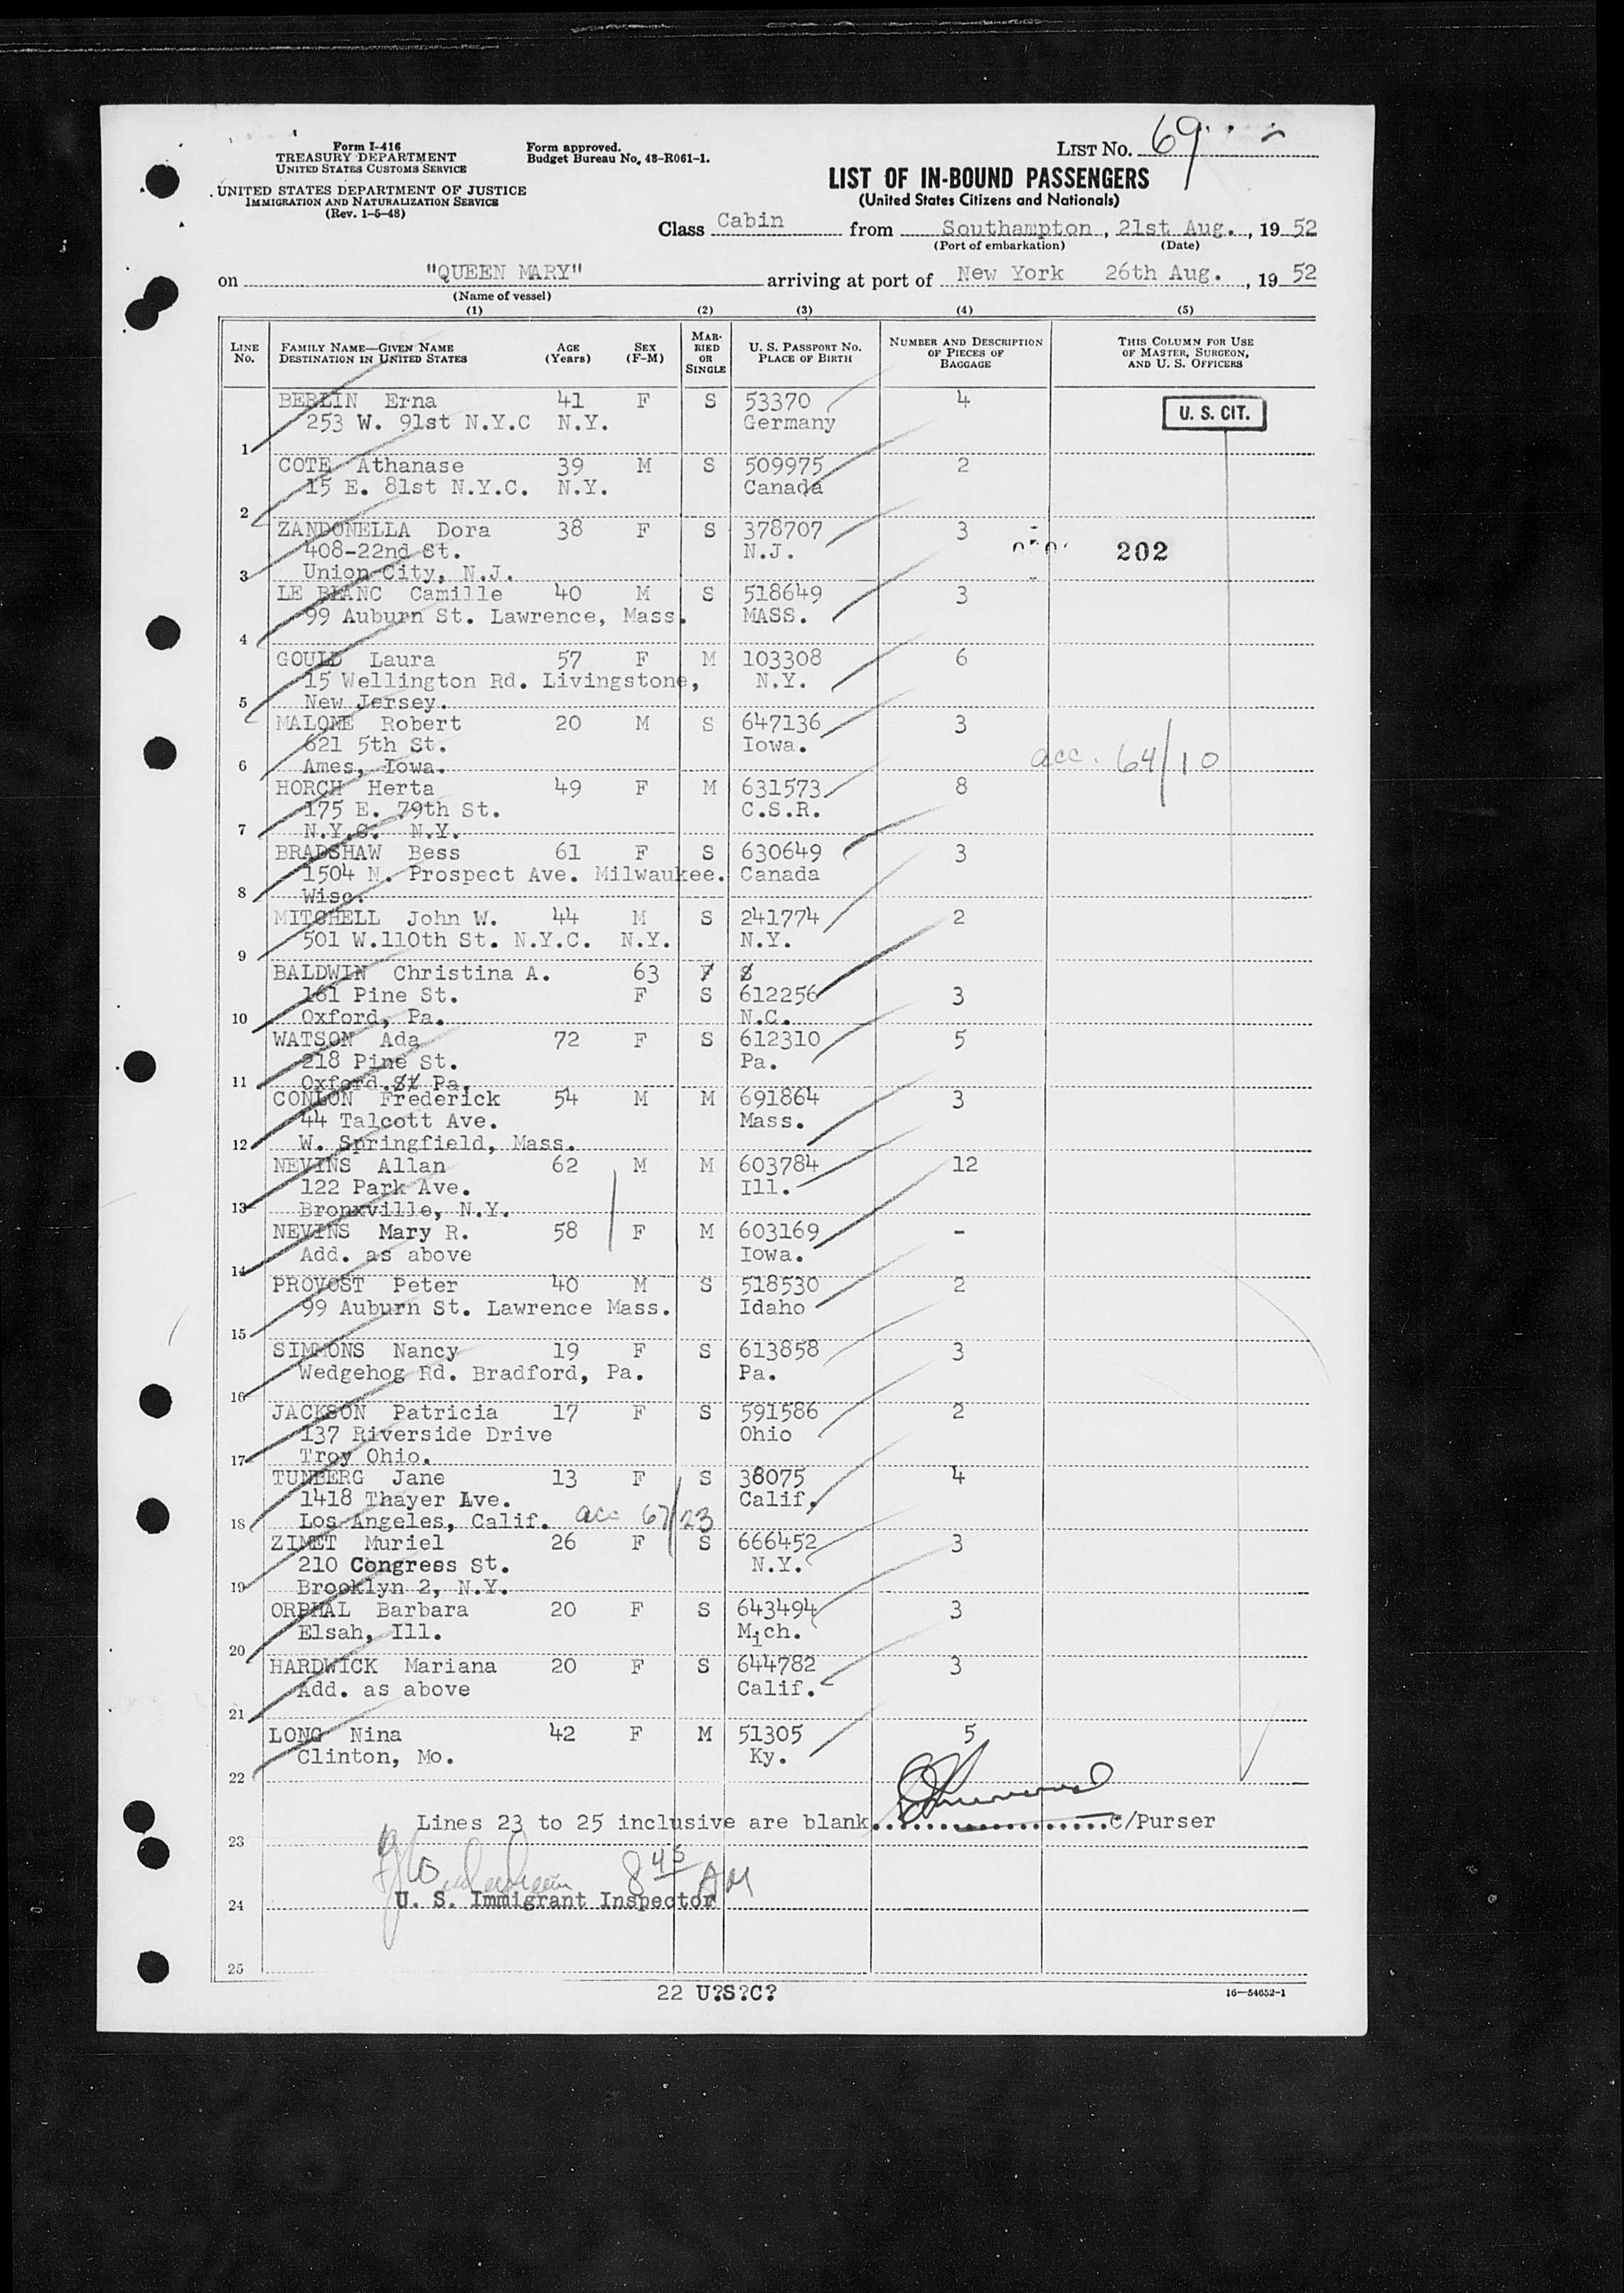 Form I-416
TREASURY DEPARTMENT
UNITED STATES CUSTOMS SERVICE
UNITED STATES DEPARTMENT OF JUSTICE
IMMIGRATION AND NATURALIZATION SERVICE
(Rev. 1-5-48)
Form approved.
Budget Bureau No. 48-R061-1.
LIST No. 69
LIST OF IN-BOUND PASSENGERS
(United States Citizens and Nationals)
Class Cabin from Southampton, 21st Aug., 19 52
(Port of embarkation) (Date)
on "QUEEN MARY" arriving at port of New York 26th Aug., 19 52
(Name of vessel)
(1) (2) (3) (4) (5)
LINE No. FAMILY NAME—GIVEN NAME DESTINATION IN UNITED STATES AGE (Years) SEX (F-M) MARRIED OR SINGLE U. S. PASSPORT No. PLACE OF BIRTH NUMBER AND DESCRIPTION OF PIECES OF BAGGAGE THIS COLUMN FOR USE OF MASTER, SURGEON, AND U. S. OFFICERS
BERLIN Erna 41 F S 53370 4 U. S. CIT.
253 W. 91st N.Y.C N.Y. Germany
1
COTE Athanase 39 M S 509975 2
15 E. 81st N.Y.C. N.Y. Canada
2
ZANDONELLA Dora 38 F S 378707 3
408-22nd St. N.J. 202
3 Union City, N.J.
LE BLANC Camille 40 M S 518649 3
99 Auburn St. Lawrence, Mass. MASS.
4
GOULD Laura 57 F M 103308 6
15 Wellington Rd. Livingstone, N.Y.
5 New Jersey.
MALONE Robert 20 M S 647136 3
621 5th St. Iowa.
6 Ames, Iowa. acc. 64/10
HORCH Herta 49 F M 631573 8
175 E. 79th St. C.S.R.
7 N.Y.C. N.Y.
BRADSHAW Bess 61 F S 630649 3
1504 N. Prospect Ave. Milwaukee. Canada
8 Wisc.
MITCHELL John W. 44 M S 241774 2
501 W.110th St. N.Y.C. N.Y. N.Y.
9
BALDWIN Christina A. 63 F S
161 Pine St. F S 612256 3
10 Oxford, Pa. N.C.
WATSON Ada 72 F S 612310 5
218 Pine St. Pa.
11 Oxford.St Pa.
CONLON Frederick 54 M M 691864 3
44 Talcott Ave. Mass.
12 W. Springfield, Mass.
NEVINS Allan 62 M M 603784 12
122 Park Ave. Ill.
13 Bronxville, N.Y.
NEVINS Mary R. 58 F M 603169 -
Add. as above Iowa.
14
PROVOST Peter 40 M S 518530 2
99 Auburn St. Lawrence Mass. Idaho
15
SIMMONS Nancy 19 F S 613858 3
Wedgehog Rd. Bradford, Pa. Pa.
16
JACKSON Patricia 17 F S 591586 2
137 Riverside Drive Ohio
17 Troy Ohio.
TUNBERG Jane 13 F S 38075 4
1418 Thayer Ave. Calif.
18 Los Angeles, Calif. acc 67/23
ZIMET Muriel 26 F S 666452 3
210 Congress St. N.Y.
19 Brooklyn 2, N.Y.
ORPHAL Barbara 20 F S 643494 3
Elsah, Ill. Mich.
20
HARDWICK Mariana 20 F S 644782 3
Add. as above Calif.
21
LONG Nina 42 F M 51305 5
Clinton, Mo. Ky.
22
Lines 23 to 25 inclusive are blank C/Purser
23
8 45 AM
24 U. S. Immigrant Inspector
25
22 U?S?C?
16—54652-1